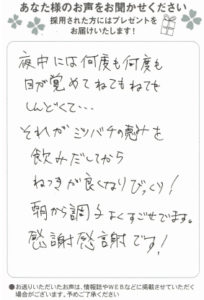 あなた様のお声をお聞かせください
採用された方にはプレゼントを
お届けいたします!
夜中には何度も何度も
目が覚めてねてもねても
しんどくて…
それがミツバチの恵みを
飲みだしてから
ねつきが良くなりびっくり!
朝から調子よくすごせてます。
感謝感謝です!
●お送りいただいたお声は、情報誌やWEBなどに掲載させていただく
場合がございます。予めご了承ください